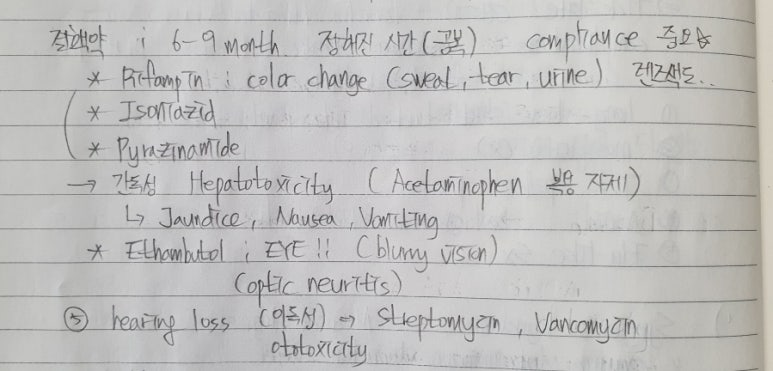 결핵약 ; 6-9 month 정해진 시간(공복) compliance 중요함
* Rifampin ; color change (sweat, tear, urine) 렌즈색도..
* Isoniazid
* Pyrazinamide
→ 간독성 Hepatotoxicity (Acetaminophen 복용 자제)
↳ Jaundice, Nausea, Vomiting
* Ethambutol ; EYE !! (blurry vision)
(optic neuritis)
⑤ hearing loss (이독성) → Streptomycin, Vancomycin
ototoxicity